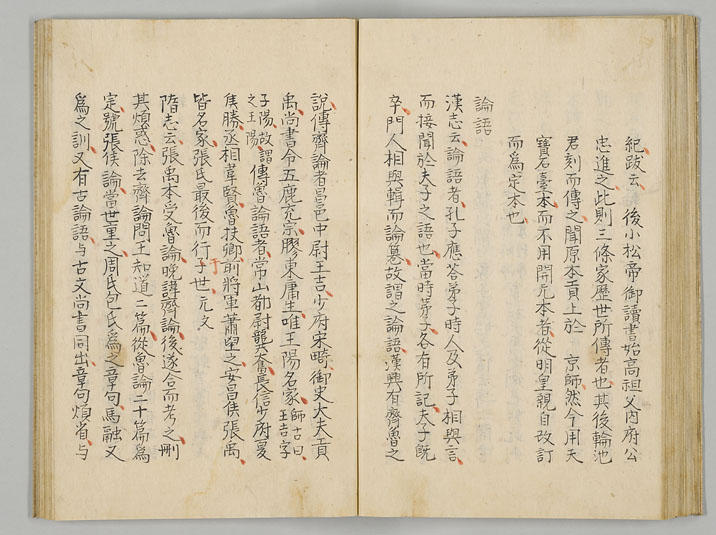 紀跋云 後小松帝御讀書始高祖父内府公
忠進之此則三條家歷世所傳者也其後輪池
君刻而傳之聞原本貢上於 京師然今用天
寶石臺本而不用開元本者從明皇親自改訂
而爲定本也
論語
漢志云論語者孔子應答弟子時人及弟子相與言
而接聞於夫子之語也當時弟子各有所記夫子既
卒門人相與輯而論篹故謂之論語漢興有齊魯之
說傳齊論者昌邑中尉王吉少府宋畸御史大夫貢
禹尚書令五鹿充宗膠東庸生唯王陽名家師古曰王吉字
子陽故謂之王陽傳魯論語者常山都尉龔奮長信少府夏
侯勝丞相韋賢魯扶卿前將軍蕭望之安昌侯張禹
皆名家張氏最後而行于世元文
隋志云張禹本受魯論晚講齊論後遂合而考之刪
其煩惑除去齊論問王知道二篇從魯論二十篇爲
定號張侯論當世重之周氏包氏爲之章句馬融又
爲之訓又有古論語与古文尚書同出章句煩省与